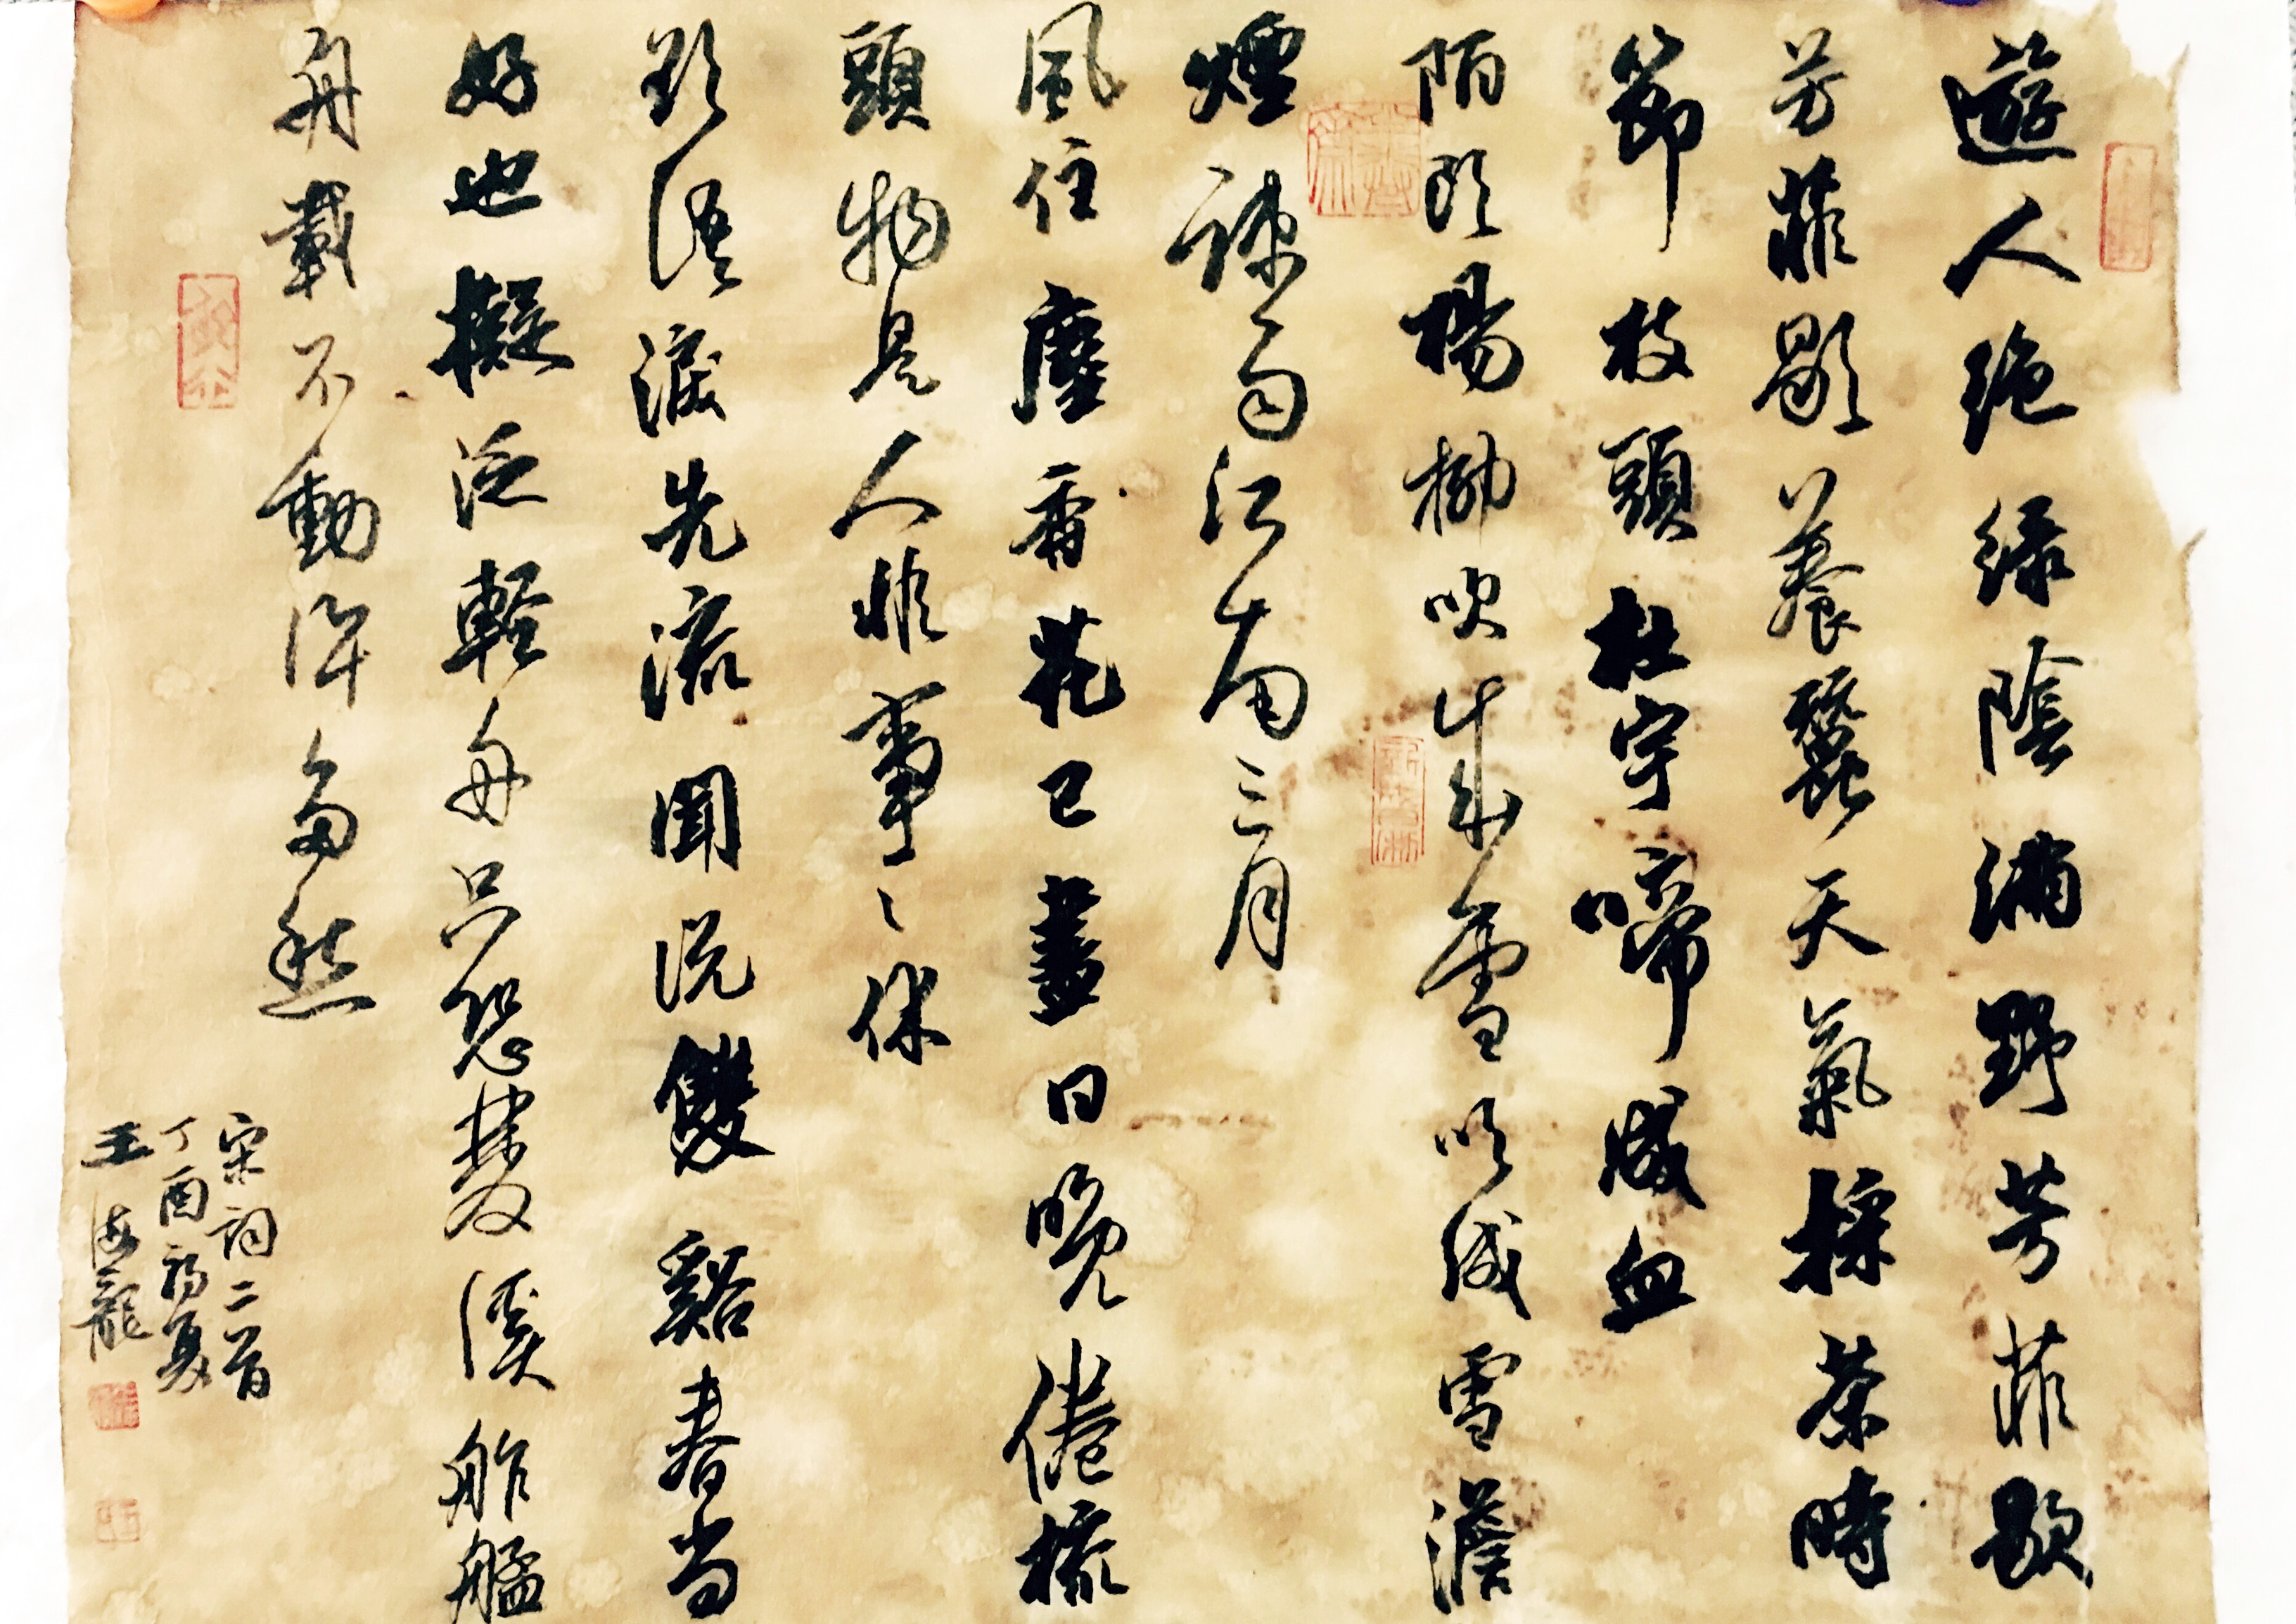 遊人絶緑陰滿野芳菲歇
芳菲歇養蠶天氣採茶時
節枝頭杜宇啼成血
陌頭楊柳吹成雪吹成雪澹
煙疎雨江南三月
風住塵香花已盡日晚倦梳
頭物是人非事〻休
欲語淚先流聞説雙谿春尚
好也擬泛輕舟只恐雙溪舴艋
舟載不動許多愁
宋詞二首
丁酉初夏
王海龍